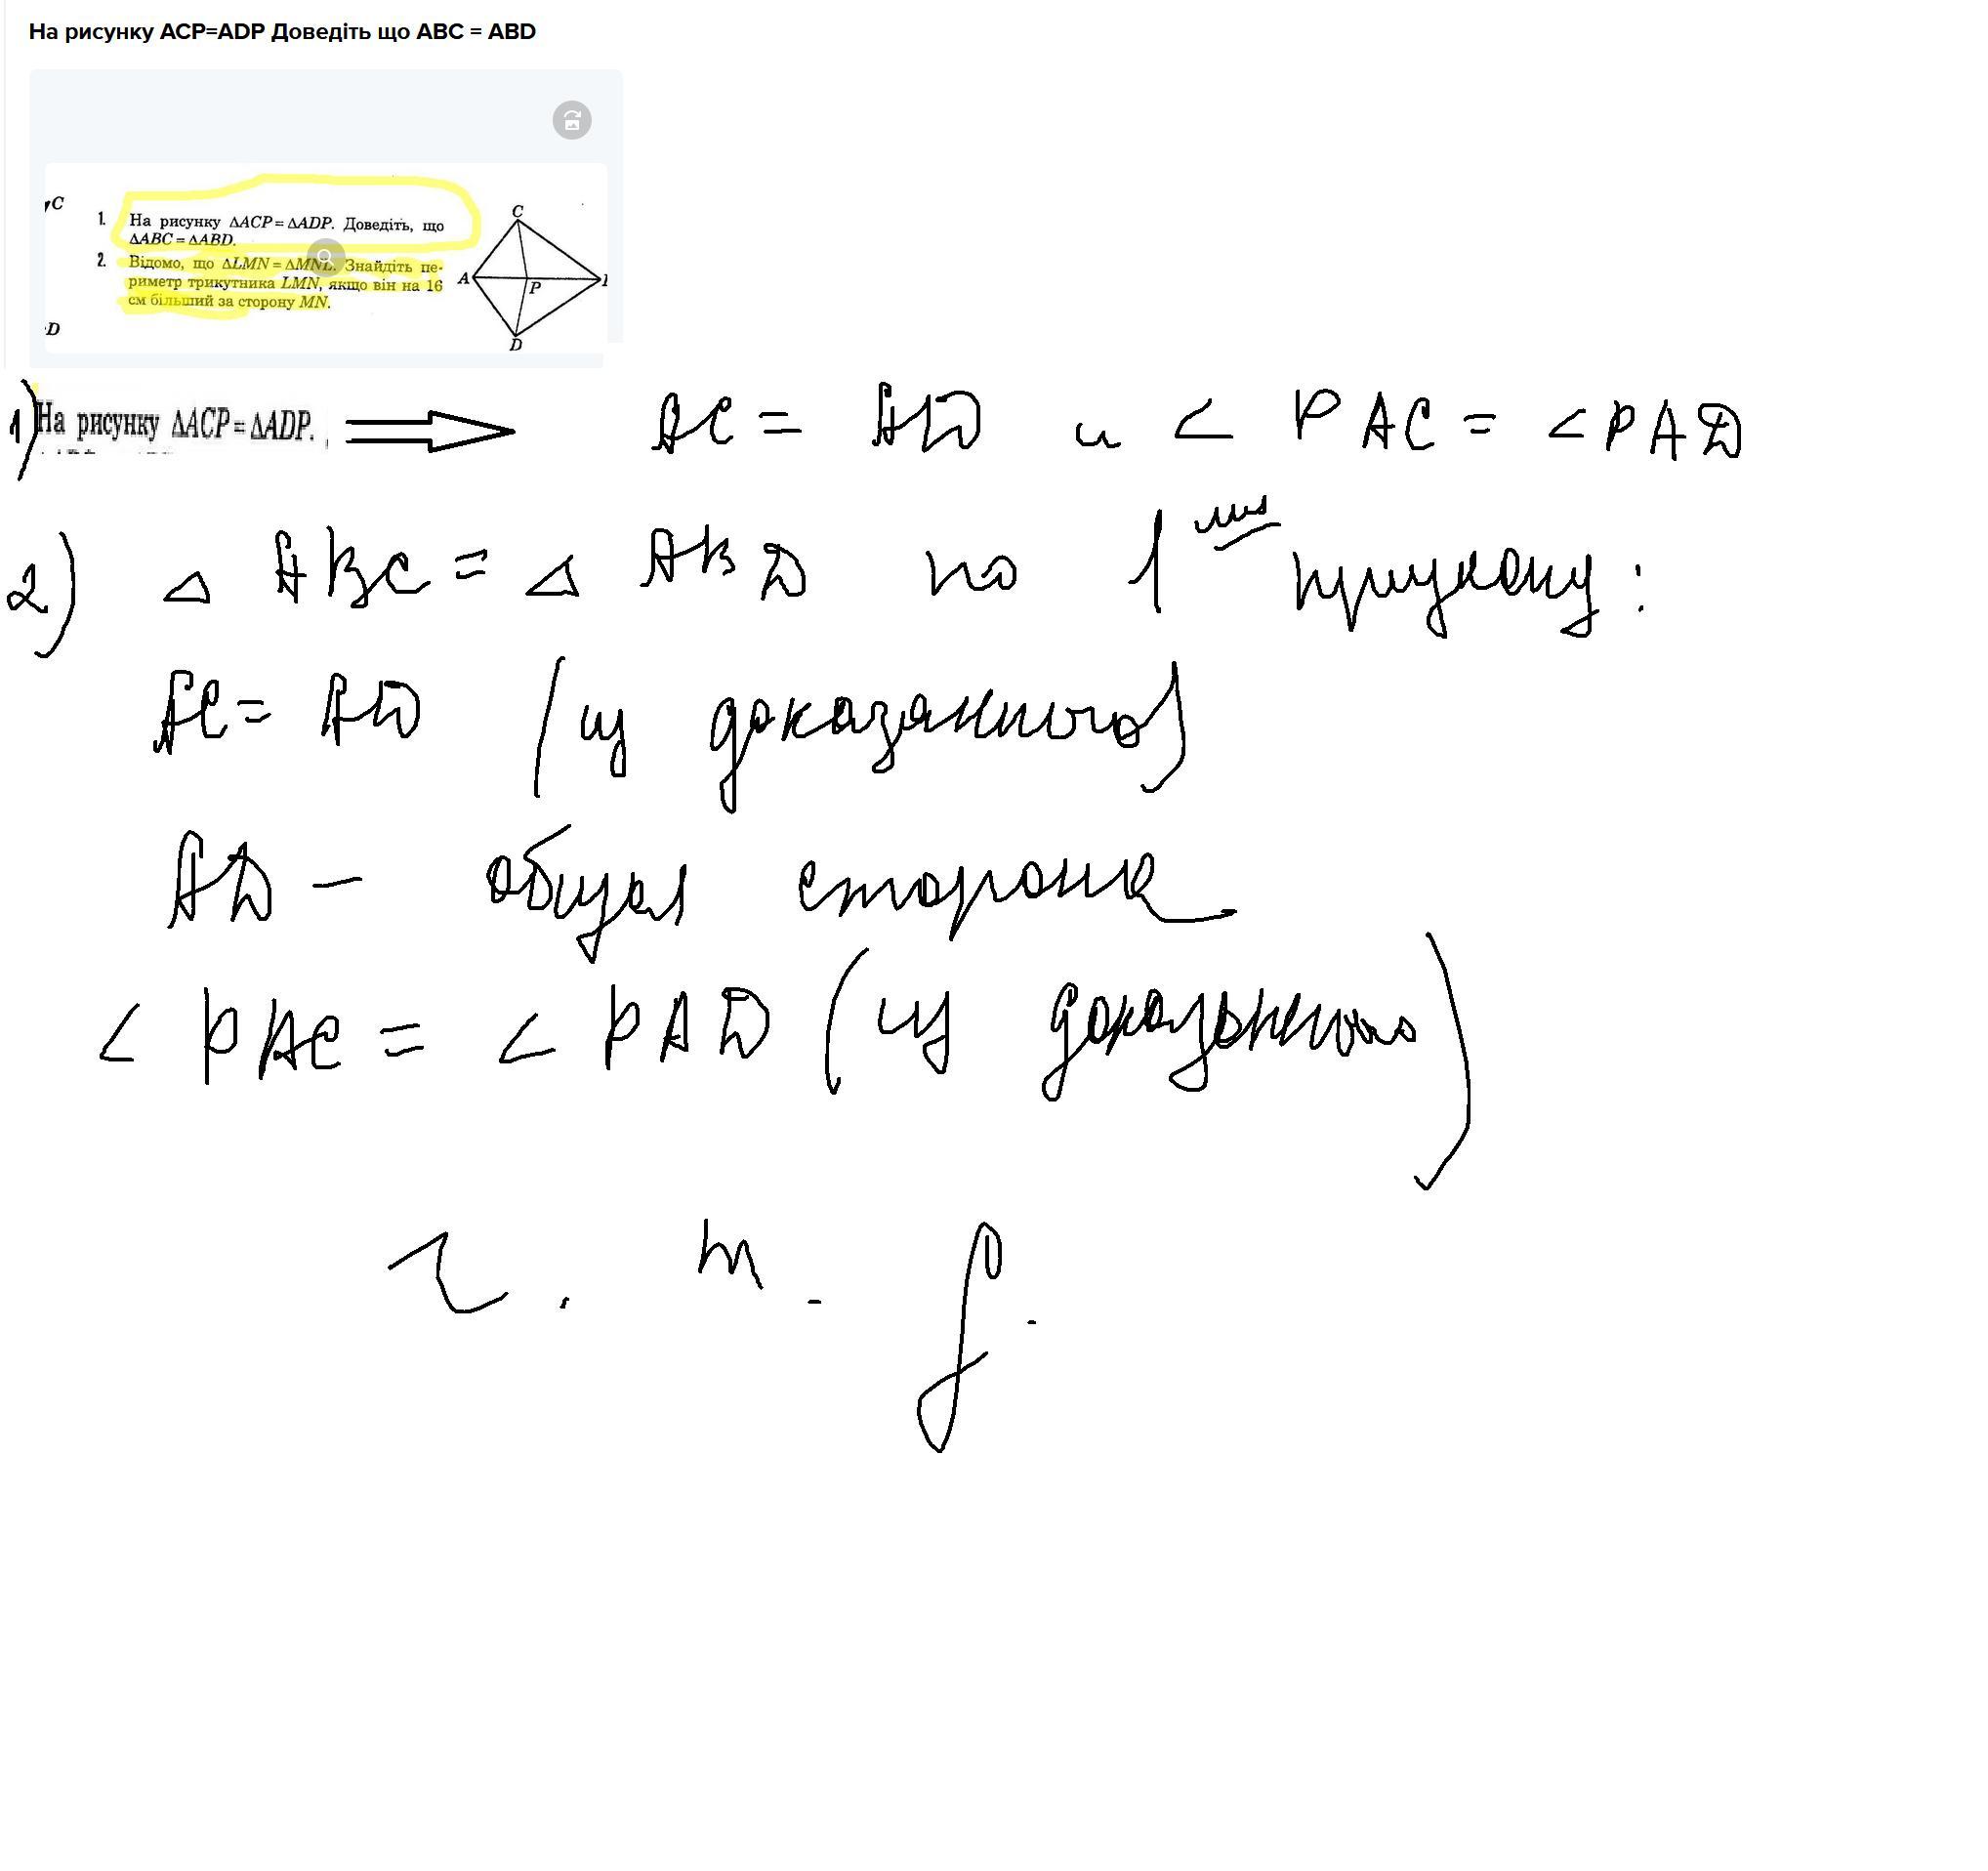 На рисунку ACP=ADP Доведіть що ABC = ABD
C
1. На рисунку ΔACP = ΔADP. Доведіть, що
ΔABC = ΔABD.
2. Відомо, що ΔLMN = ΔMNL. Знайдіть пе-
риметр трикутника LMN, якщо він на 16
см більший за сторону MN.
D
C
A
P
D
1) На рисунку ΔACP = ΔADP. ⇒ AC = AD и < PAC = < PAD
2) Δ ABC = Δ ABD по 1 признаку:
AC = AD (из доказанного)
AD - общая сторона
< PAC = < PAD (из доказанного)
ч. т. д.